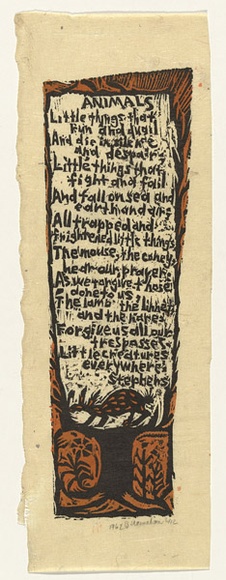 ANIMALS
Little things that
run and quail
And die in silence
and despair;
Little things that
fight and fail
And fall on sea and
earth and air:
All trapped and
frightened little things
The mouse, the coney,
hear our prayer.
As we forgive those
done to us,
The lamb, the linnet,
and the hare,
Forgive us all our
trespasses,
Little creatures
everywhere.
Stephens
1962